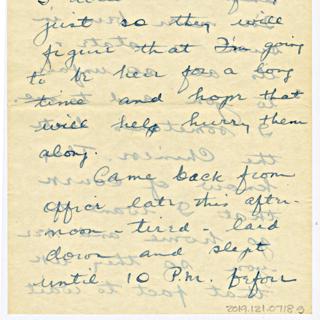 just so they will
figure that I'm going
to be heer for a long
time and hope that
will help hurry them
along.
Came back from
office late this after-
noon - tired - laid
down and slept
until 10 P.M. before
2019.121.0718g